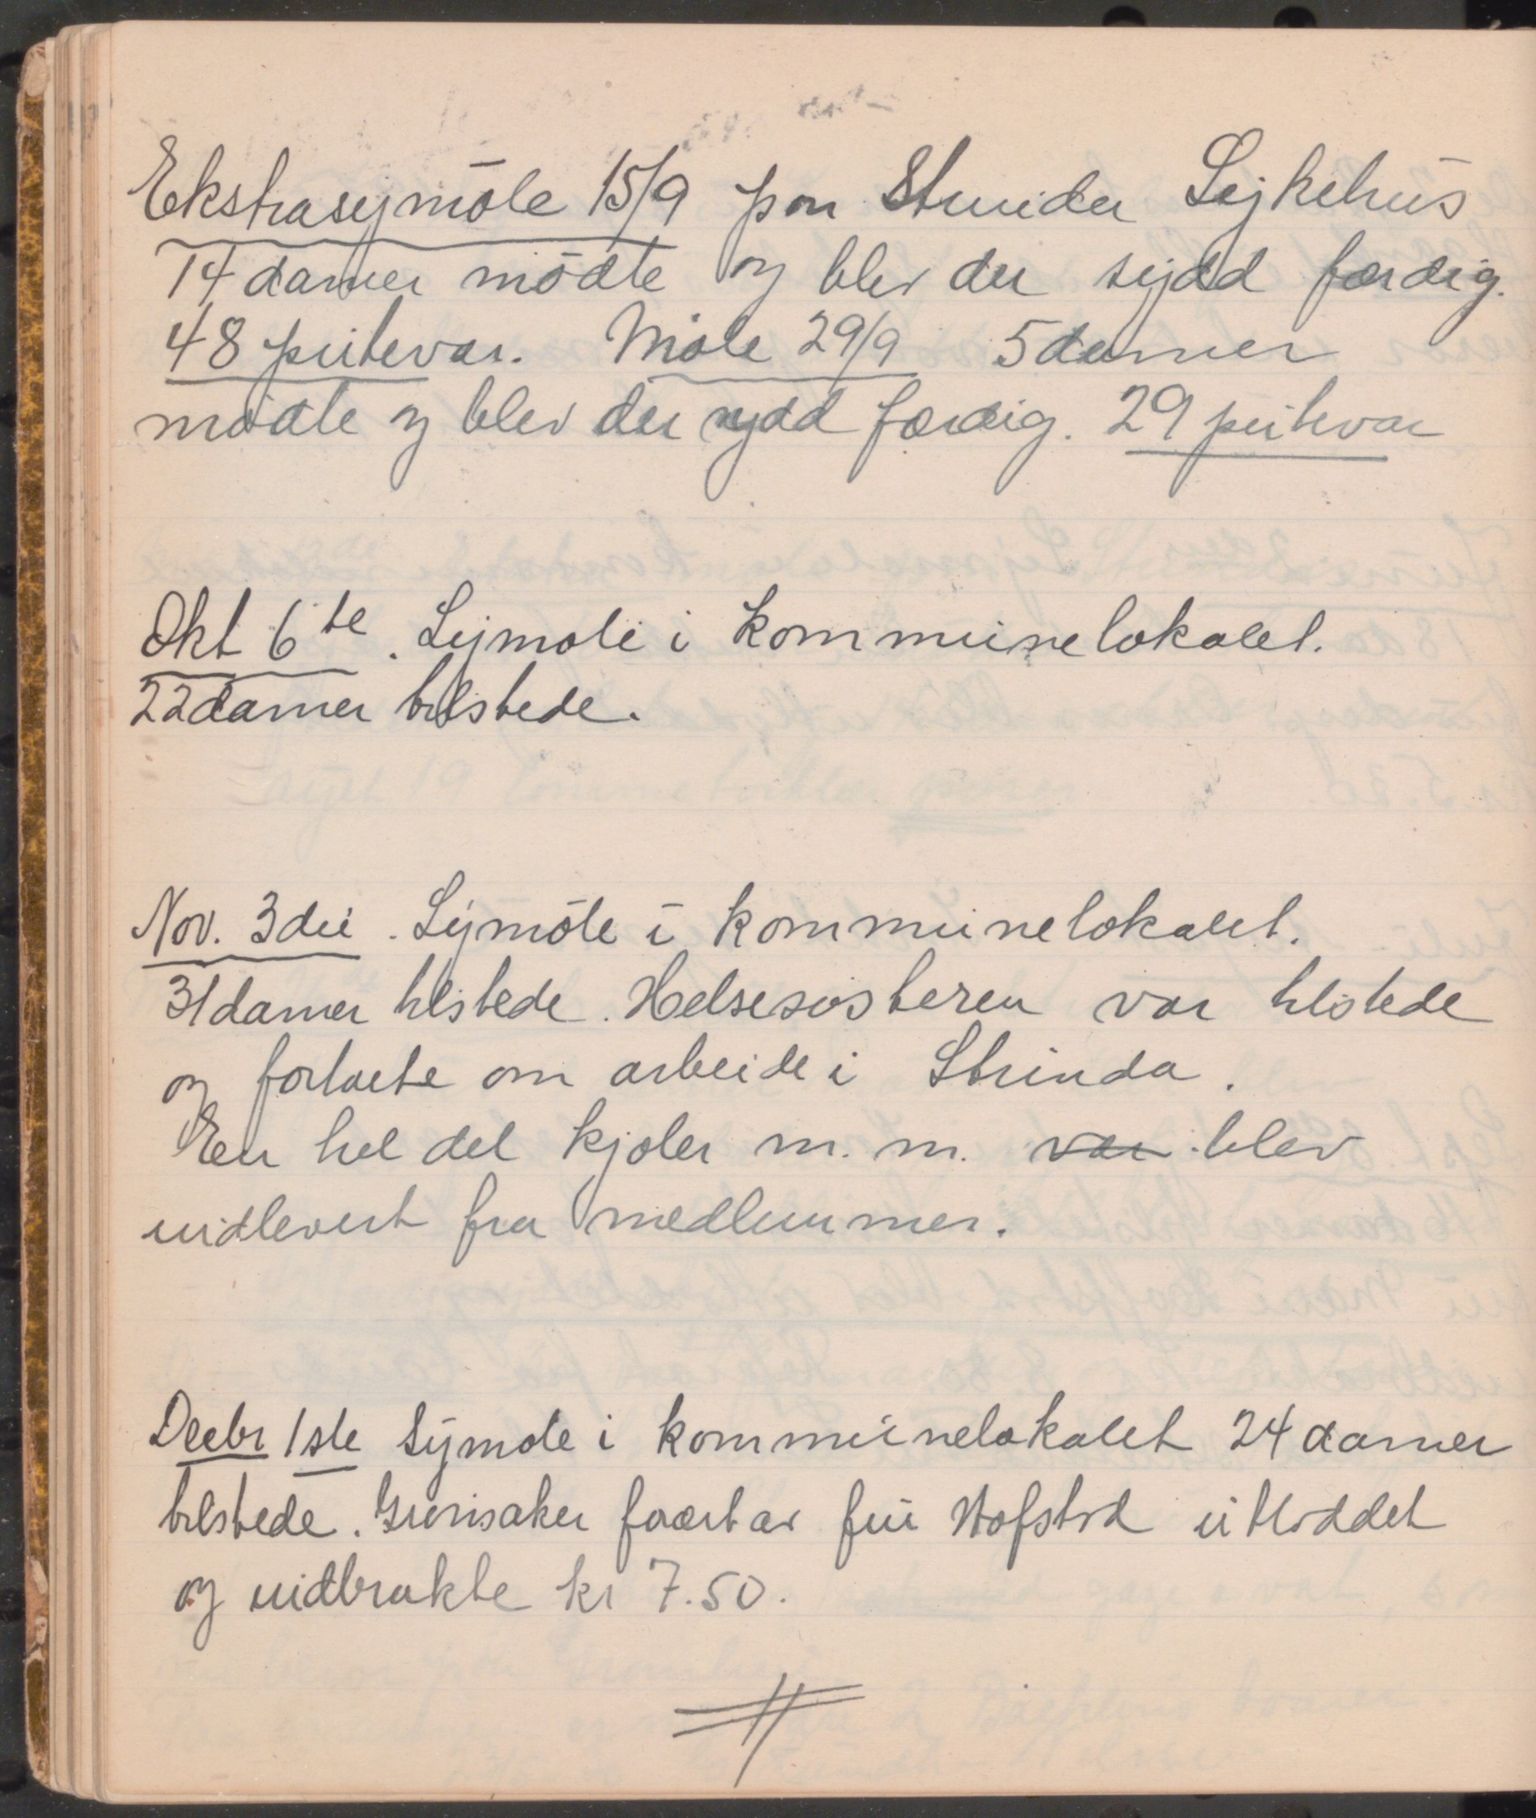 Ekstrasymöte 15/9 paa Strinda Sykehus
14 damer mödte og blev der sydd færdig.
48 putevar. Möte 29/9 5 damer
mödte og blev der sydd færdig. 29 putevar
Okt 6te. Symöte i kommunelokalet.
22 damer tilstede.
Nov. 3die. Symöte i kommunelokalet.
31 damer tilstede. Helsesøsteren var tilstede
og fortalte om arbeide i Strinda.
En hel del kjoler m. m. var blev
indlevert fra medlemmer.
Decbr 1ste Symöte i kommunelokalet 24 damer
tilstede. forært av fru Hofstad utloddet
og indbrakte kr 7.50.